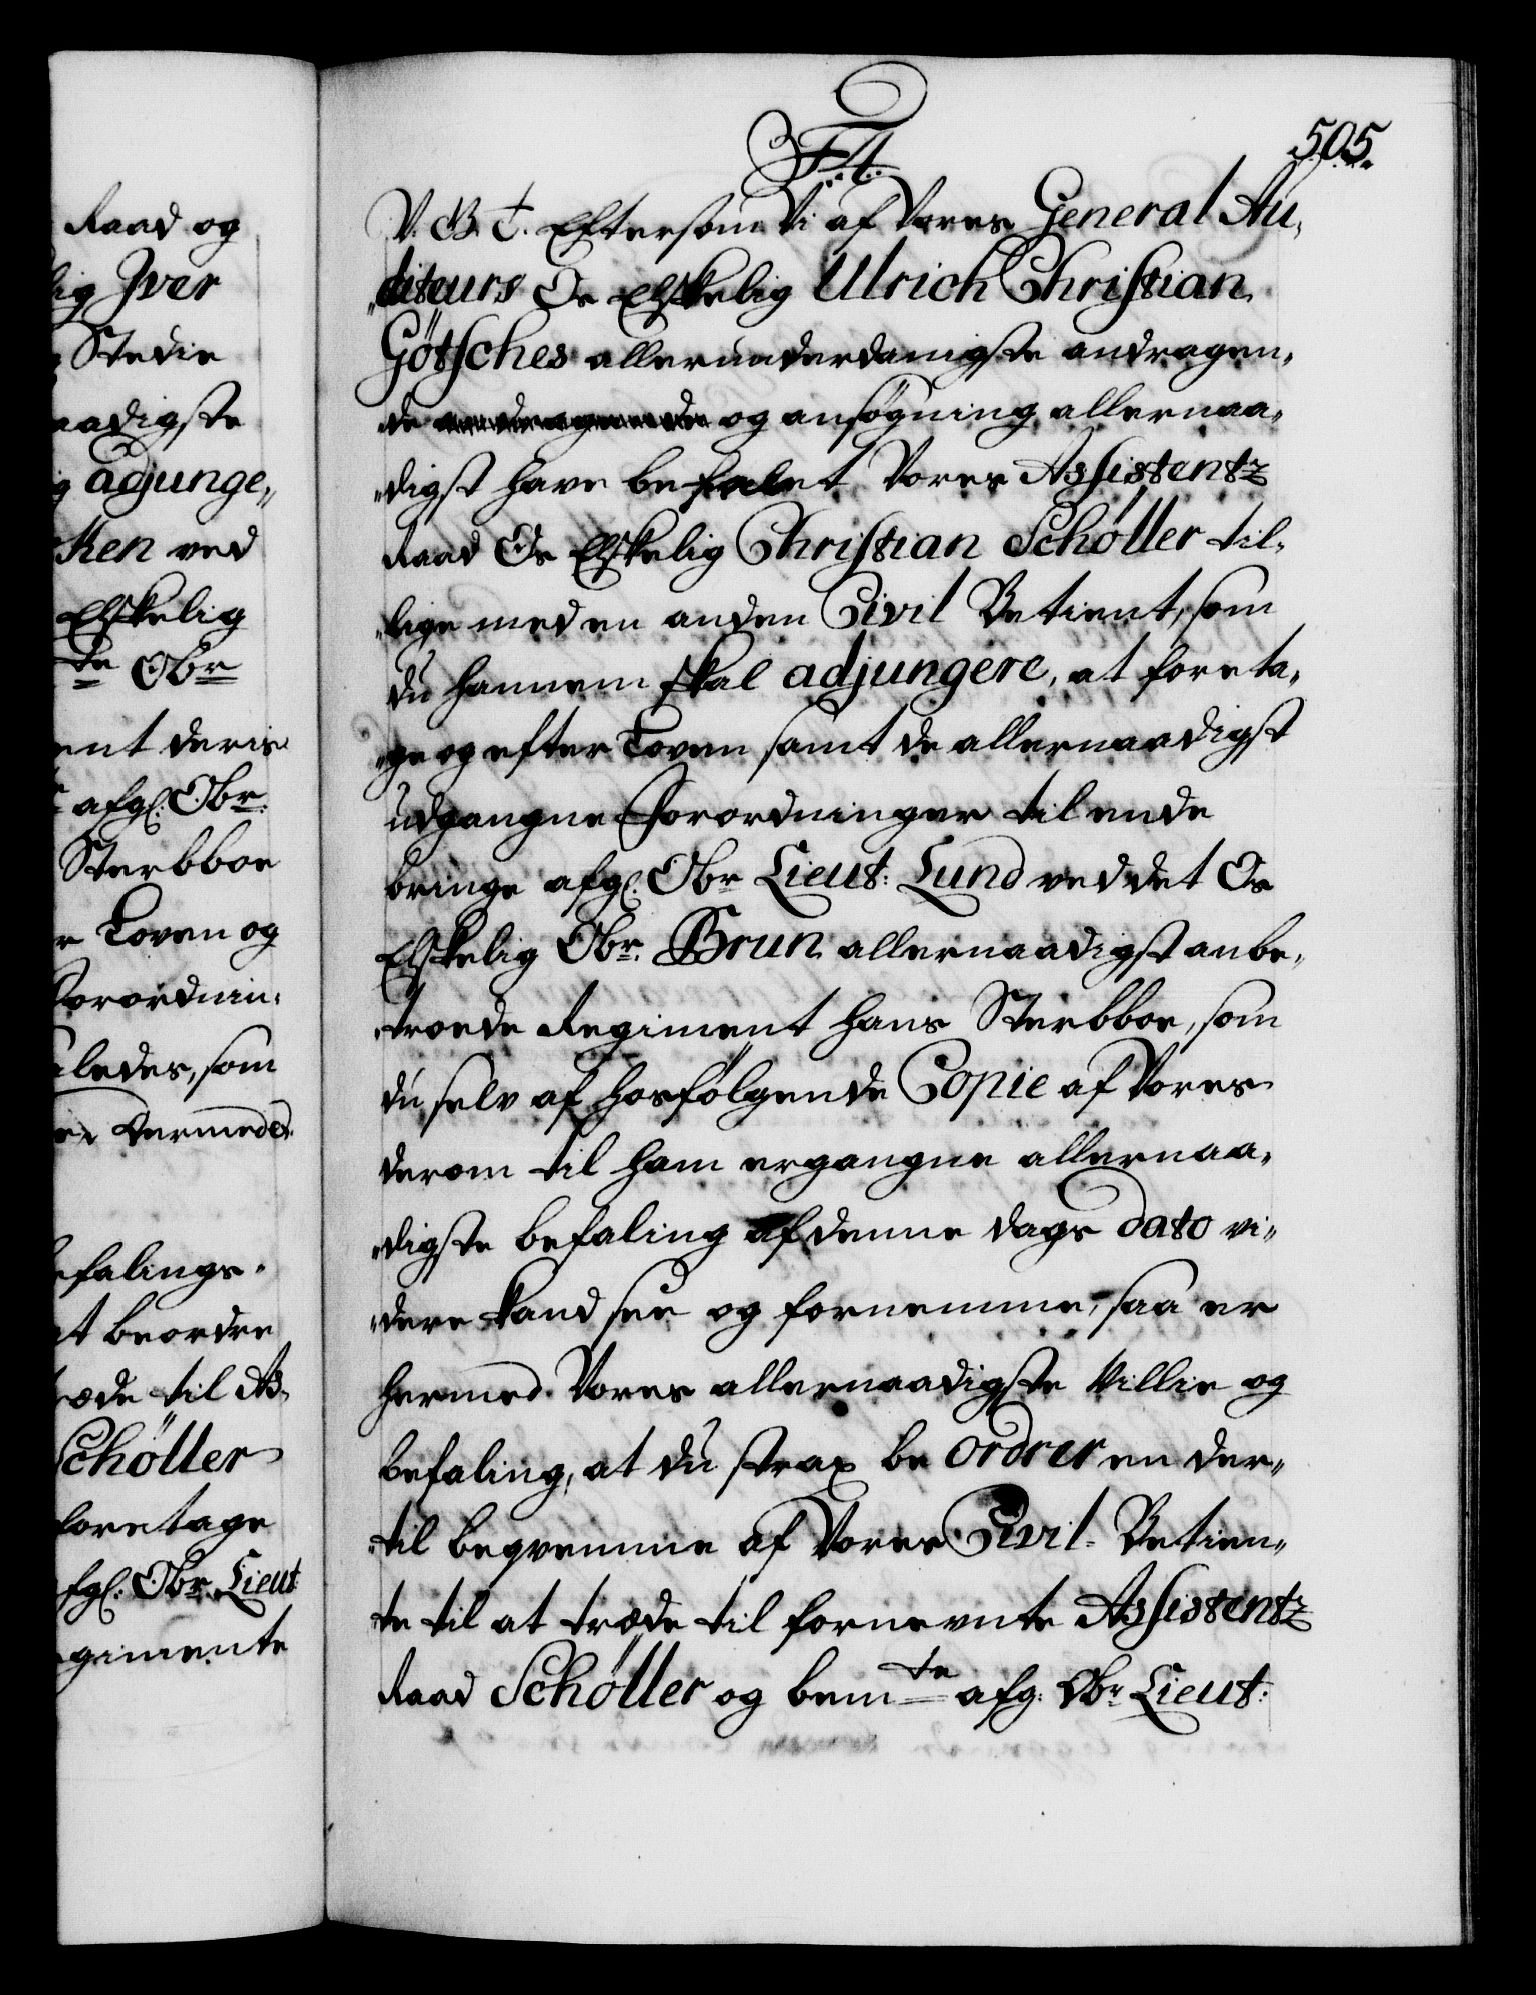 505.
F4.
V. G. T. Eftersom Vi af Vores General Au„
„diteurs Os Elskelig Ulrich Christian
Götsches allerunderdanigste andragen„
de og ansøgning allernaa„
„digst have befalet Vores Assistentz
Raad Os Elskelig Christian Schøller til„
„lige med en anden Civil Betient, som
du hannem skal adjungere, at foreta„
„ge og efter Loven samt de allernaadigst
udgangne Forordninger til ende
bringe afg: Obr Lieut: Lund ved det Os
Elskelig Obr. Brun allernaadigst anbe„
„troede Regiment hans Sterbboe, som
du selv af hosfølgende Copie af Vores
derom til ham ergangne allernaa„
„digste befaling af denne dags dato vi„
„dere kand see og fornemme, saa er
hermed Vores allernaadigste Villie og
befaling, at du strax beordrer en der„
„til beqvemme af Vores Civil-Betien„
te til at træde til fornevnte Assistentz
Raad Schøller og bemte afg: Obr Lieut:
Raad og
lig Jver
Stedie
aadigste
adjunge„
ken ved
Elskelig
te Obr
ent deris
afg: Obr:
Sterbboe
r Loven og
Forordnin„
ledes, som
dermeded
efalings„
at beordre
æde til As„
Schøller
foretage
afg: Obr Lieut
gimente